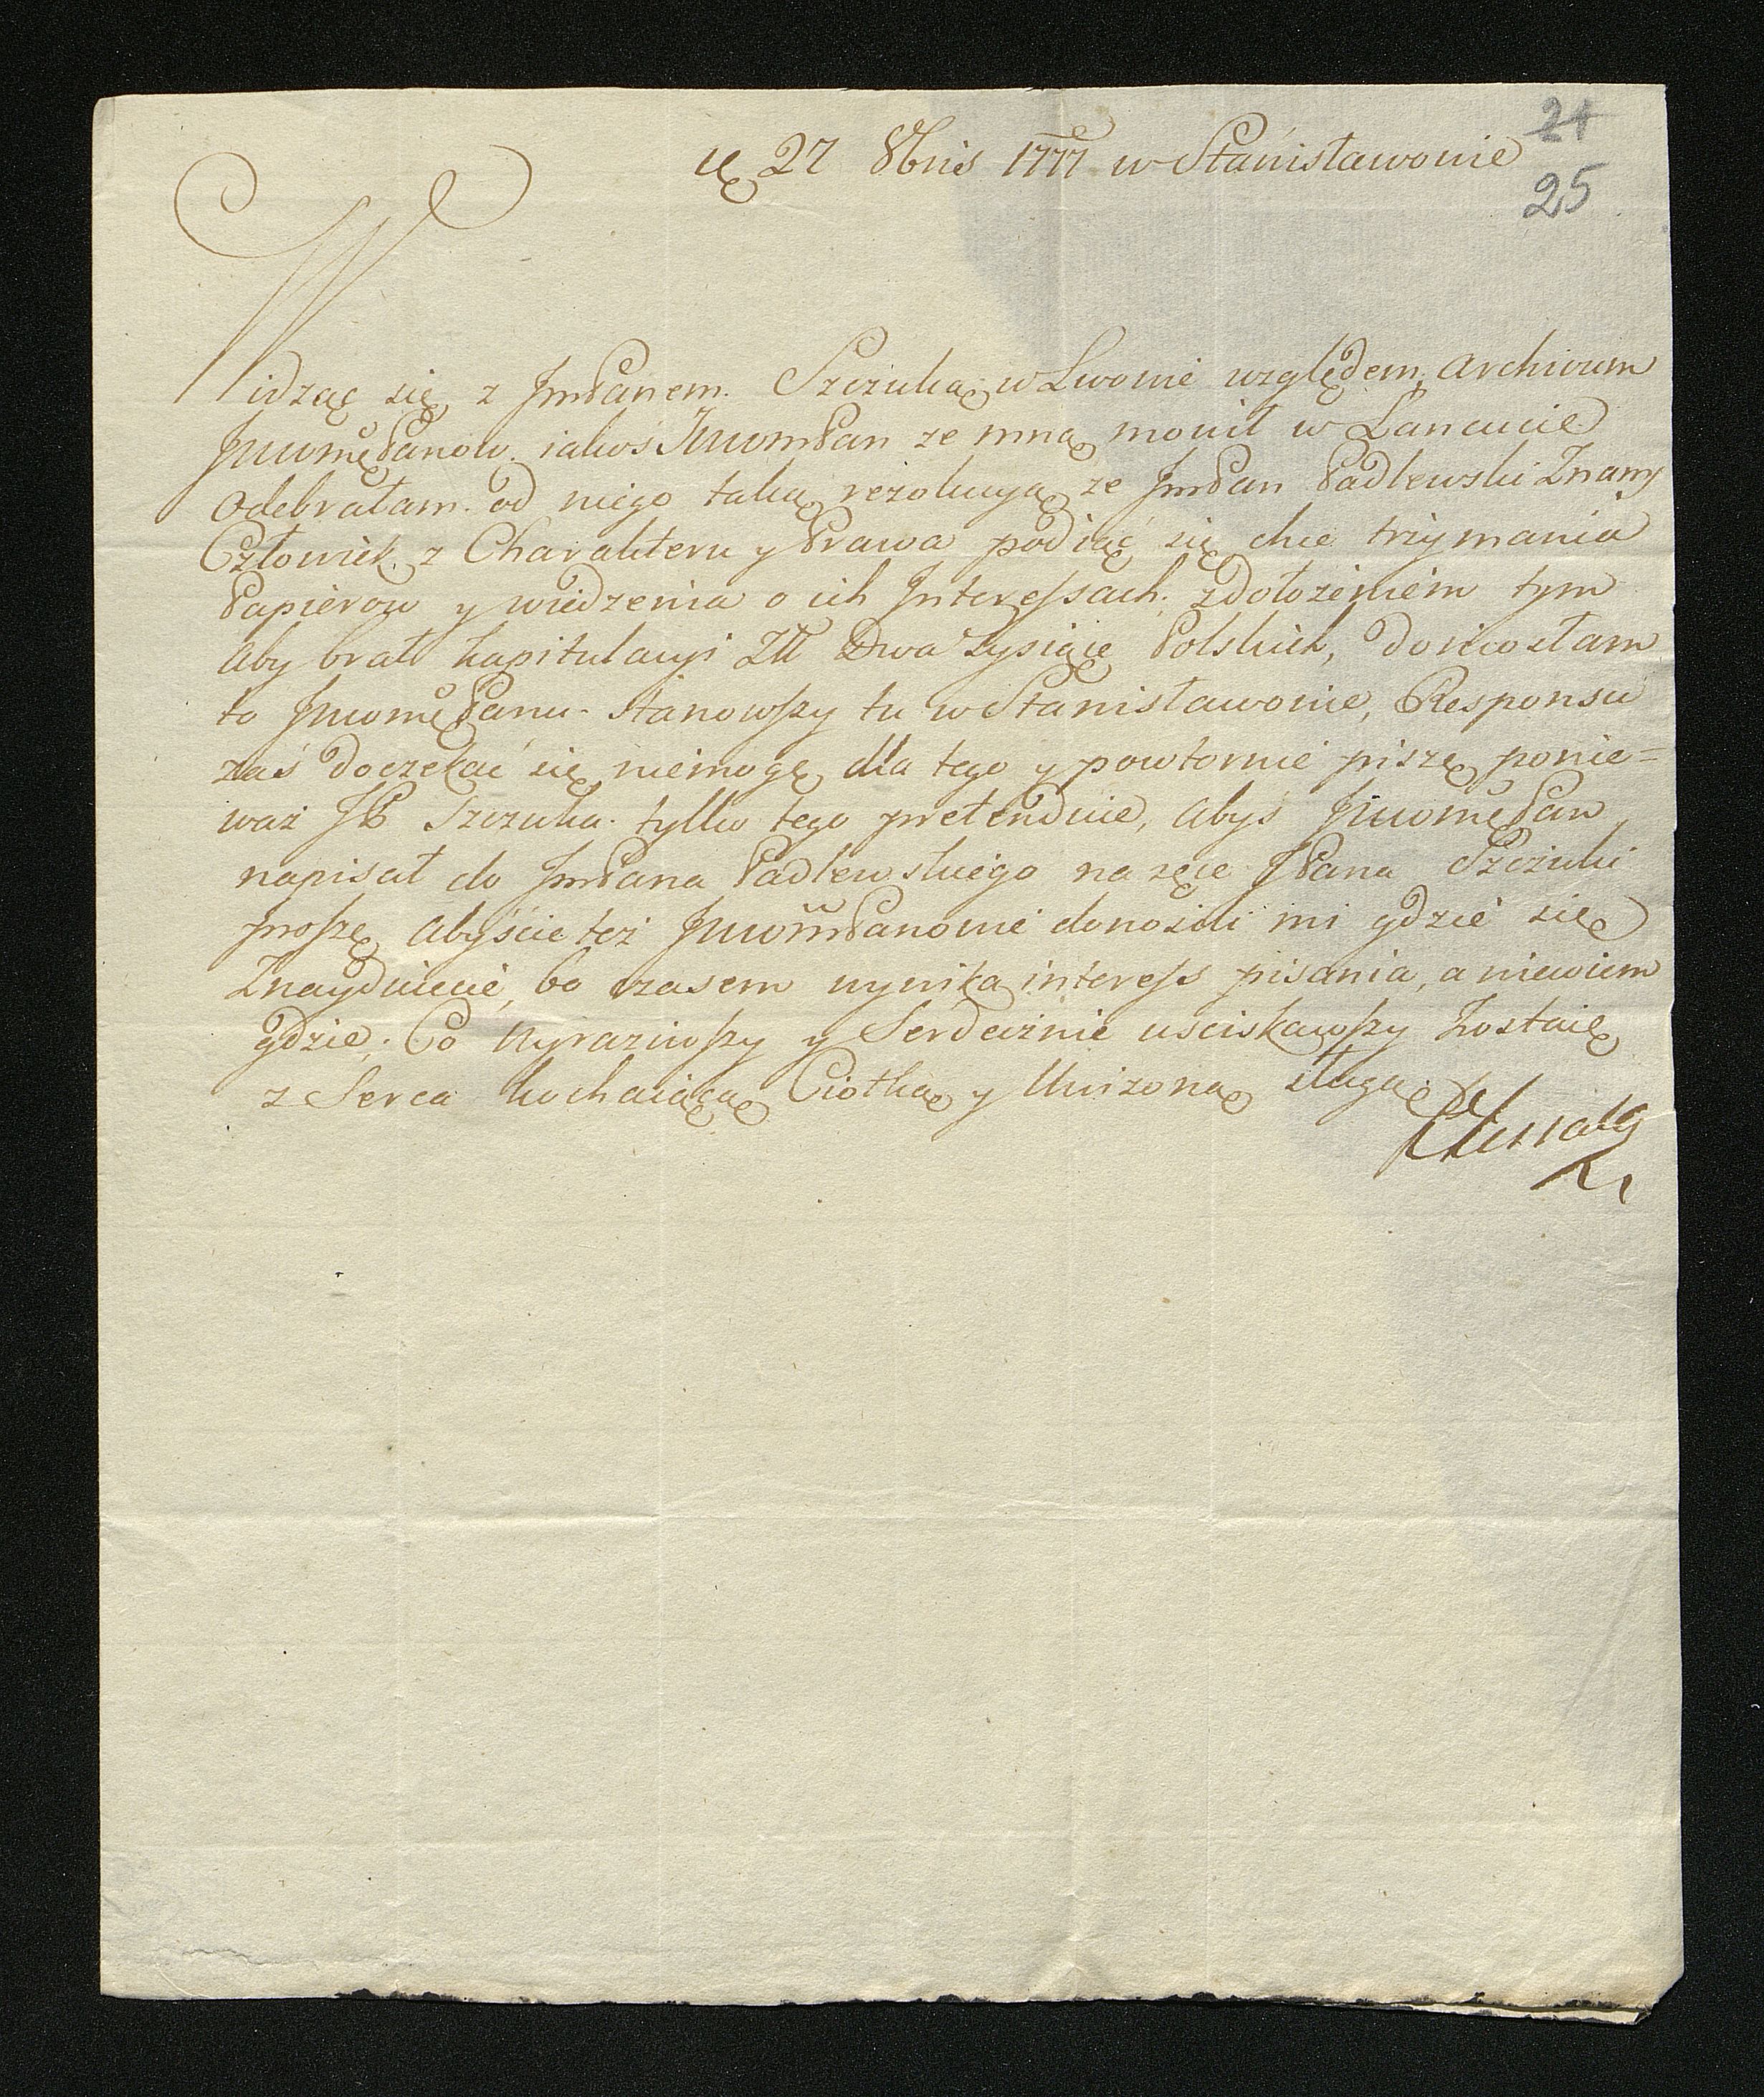 24
25
27 8bris 1777 w Stanisławowie
Widząc się z JmPanem Szczuką w Lwowie względem Archivum
JwomęPanow, iakoś JwomPan ze mną mowił w Lancucie
odebrałam od niego taką rezolucyą, ze JmPan Padlewski Znany
Człowiek z Charakteru y Prawa podiąć się chce trzymania
Papierow y wiedzenia o ich Interessach, zdołożeniem tym
aby brał kapitulacyi Złł Dwa Tysiące Polskich, doniosłam
to JwomęPanu stanowszy tu w Stanisławowie, Responsu
zaś doczekać się niemogę dla tego y powtornie piszę ponie=
waż JP Szczuka tylko tego pretenduie, abyś JwomęPan
napisał do JmPana Padlewskiego na ręce JPana Szczuki
proszę abyście też JwomPanowie donosili mi gdzie się
Znayduiecie, bo czasem wynika interess pisania, a niewiem
gdzie. Co wyraziwszy y Serdecznie usciskawszy Zostaię
z Serca kochaiącą Ciotką y Unizoną sługą